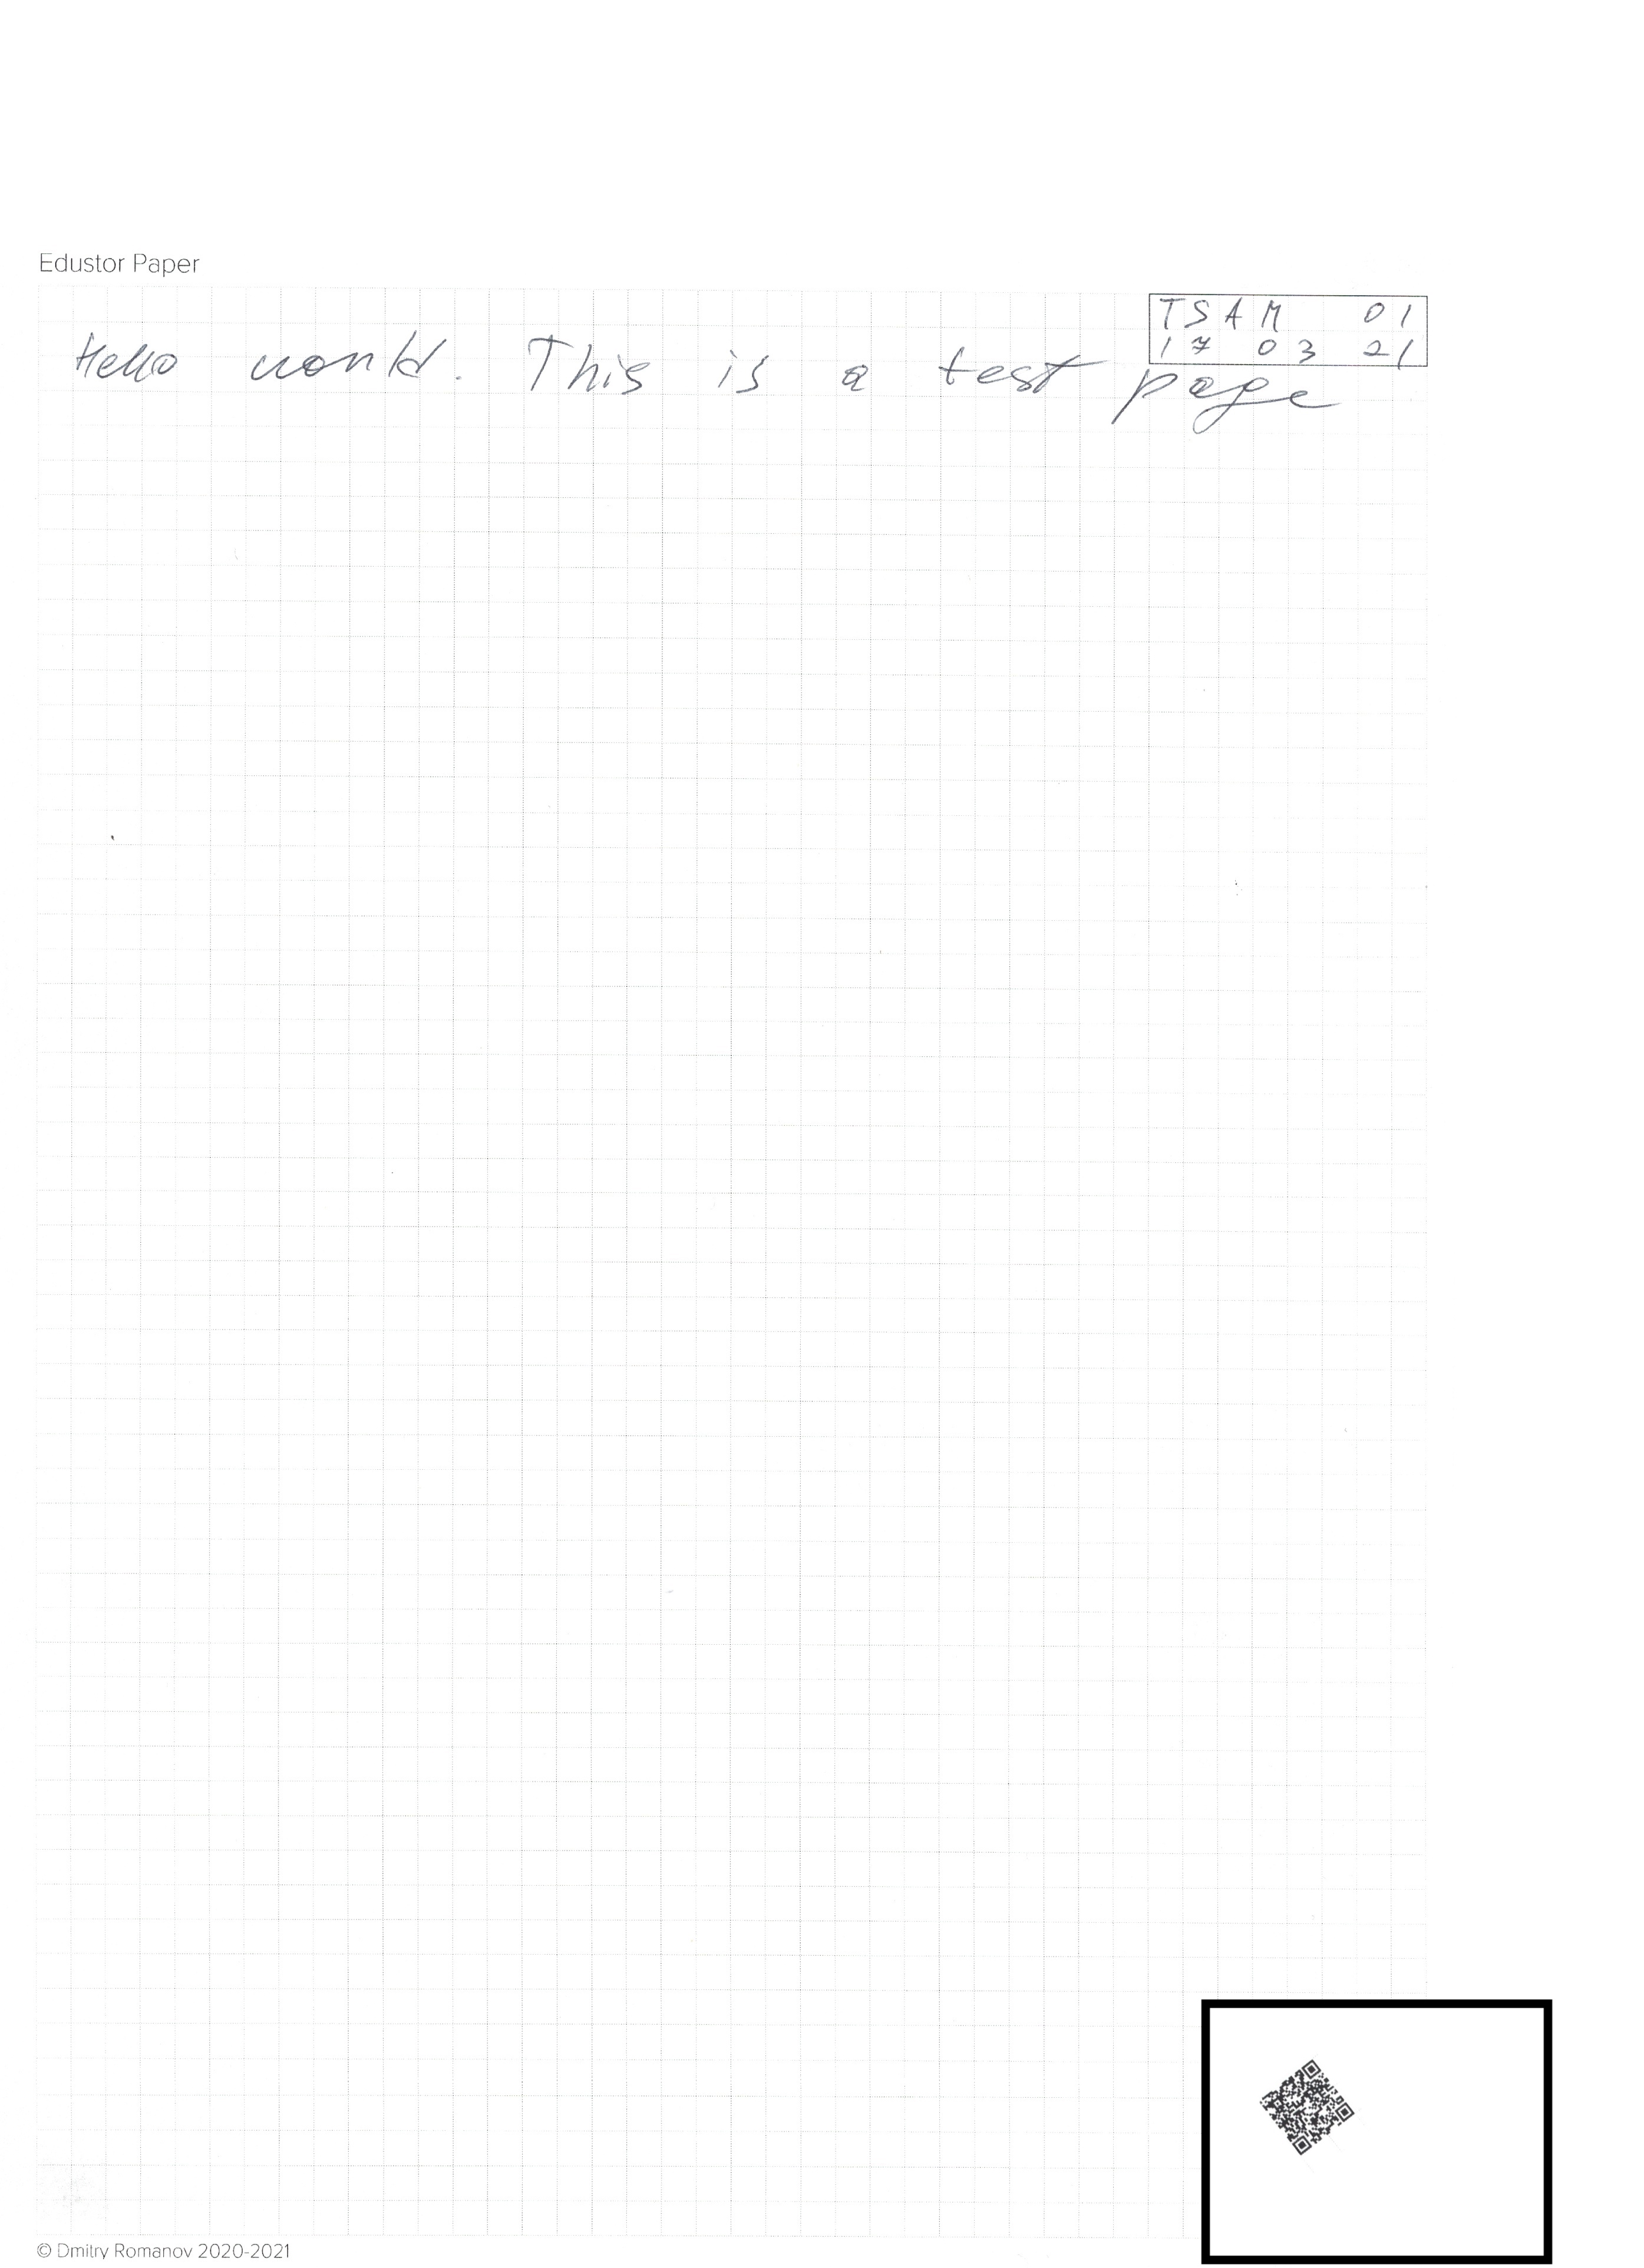 Edustor Paper
TSAM 01
17 03 21
Hello world. This is a test page
© Dmitry Romanov 2020-2021